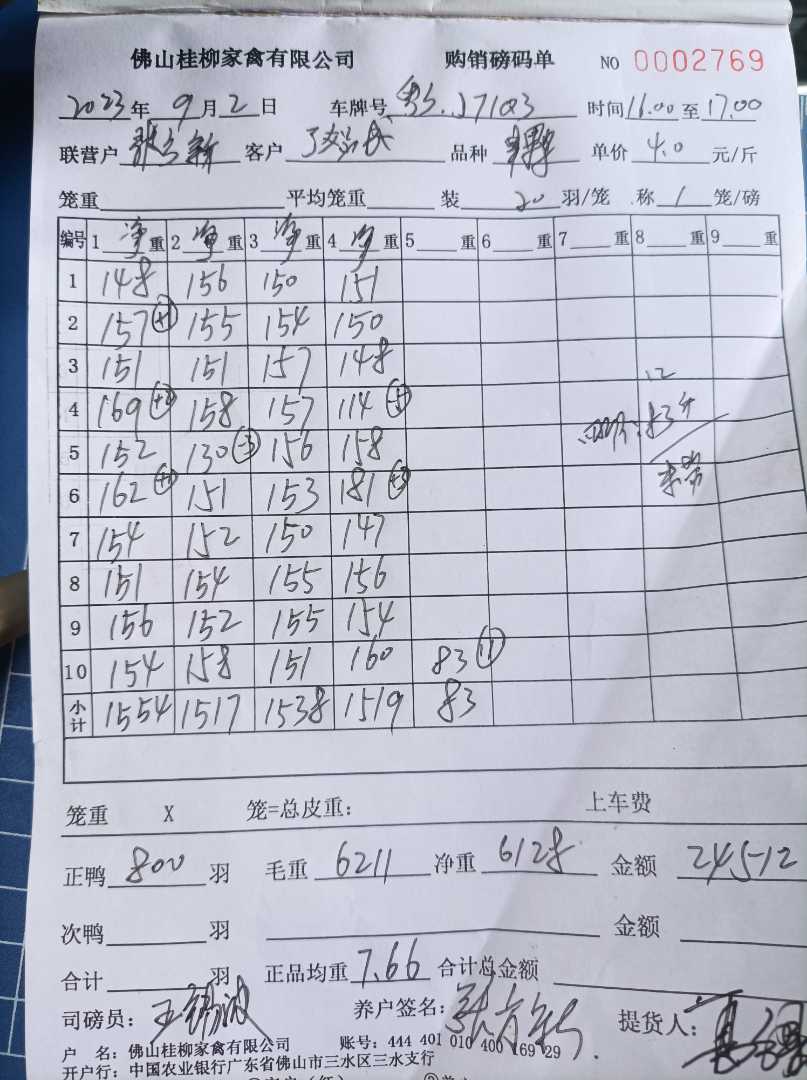 佛山桂柳家禽有限公司 购销磅码单 NO 0002769
2023年 9月2日 车牌号 J71Q3 时间16.00至17.00
联营户 客户 品种 单价 4.0 元/斤
笼重 平均笼重 装 20 羽/笼 称 1 笼/磅
编号 1 净重 2 净重 3 净重 4 净重 5 重 6 重 7 重 8 重 9 重
1 148 156 150 151
2 157 +1 155 154 150
3 151 151 157 148
4 169 +2 158 157 114 -5
5 152 130 -3 156 158
6 162 +1 151 153 181 +3
7 154 152 150 147
8 151 154 155 156
9 156 152 155 154
10 154 158 151 160 83 11
小计 1554 1517 1538 1519 83
笼重 X 笼=总皮重: 上车费
正鸭 800 羽 毛重 6211 净重 6128 金额 24512
次鸭 羽 金额
合计 羽 正品均重 7.66 合计总金额
司磅员: 养户签名: 提货人:
户 名: 佛山桂柳家禽有限公司 账号: 444 401 010 400 169 29
开户行: 中国农业银行广东省佛山市三水区三水支行